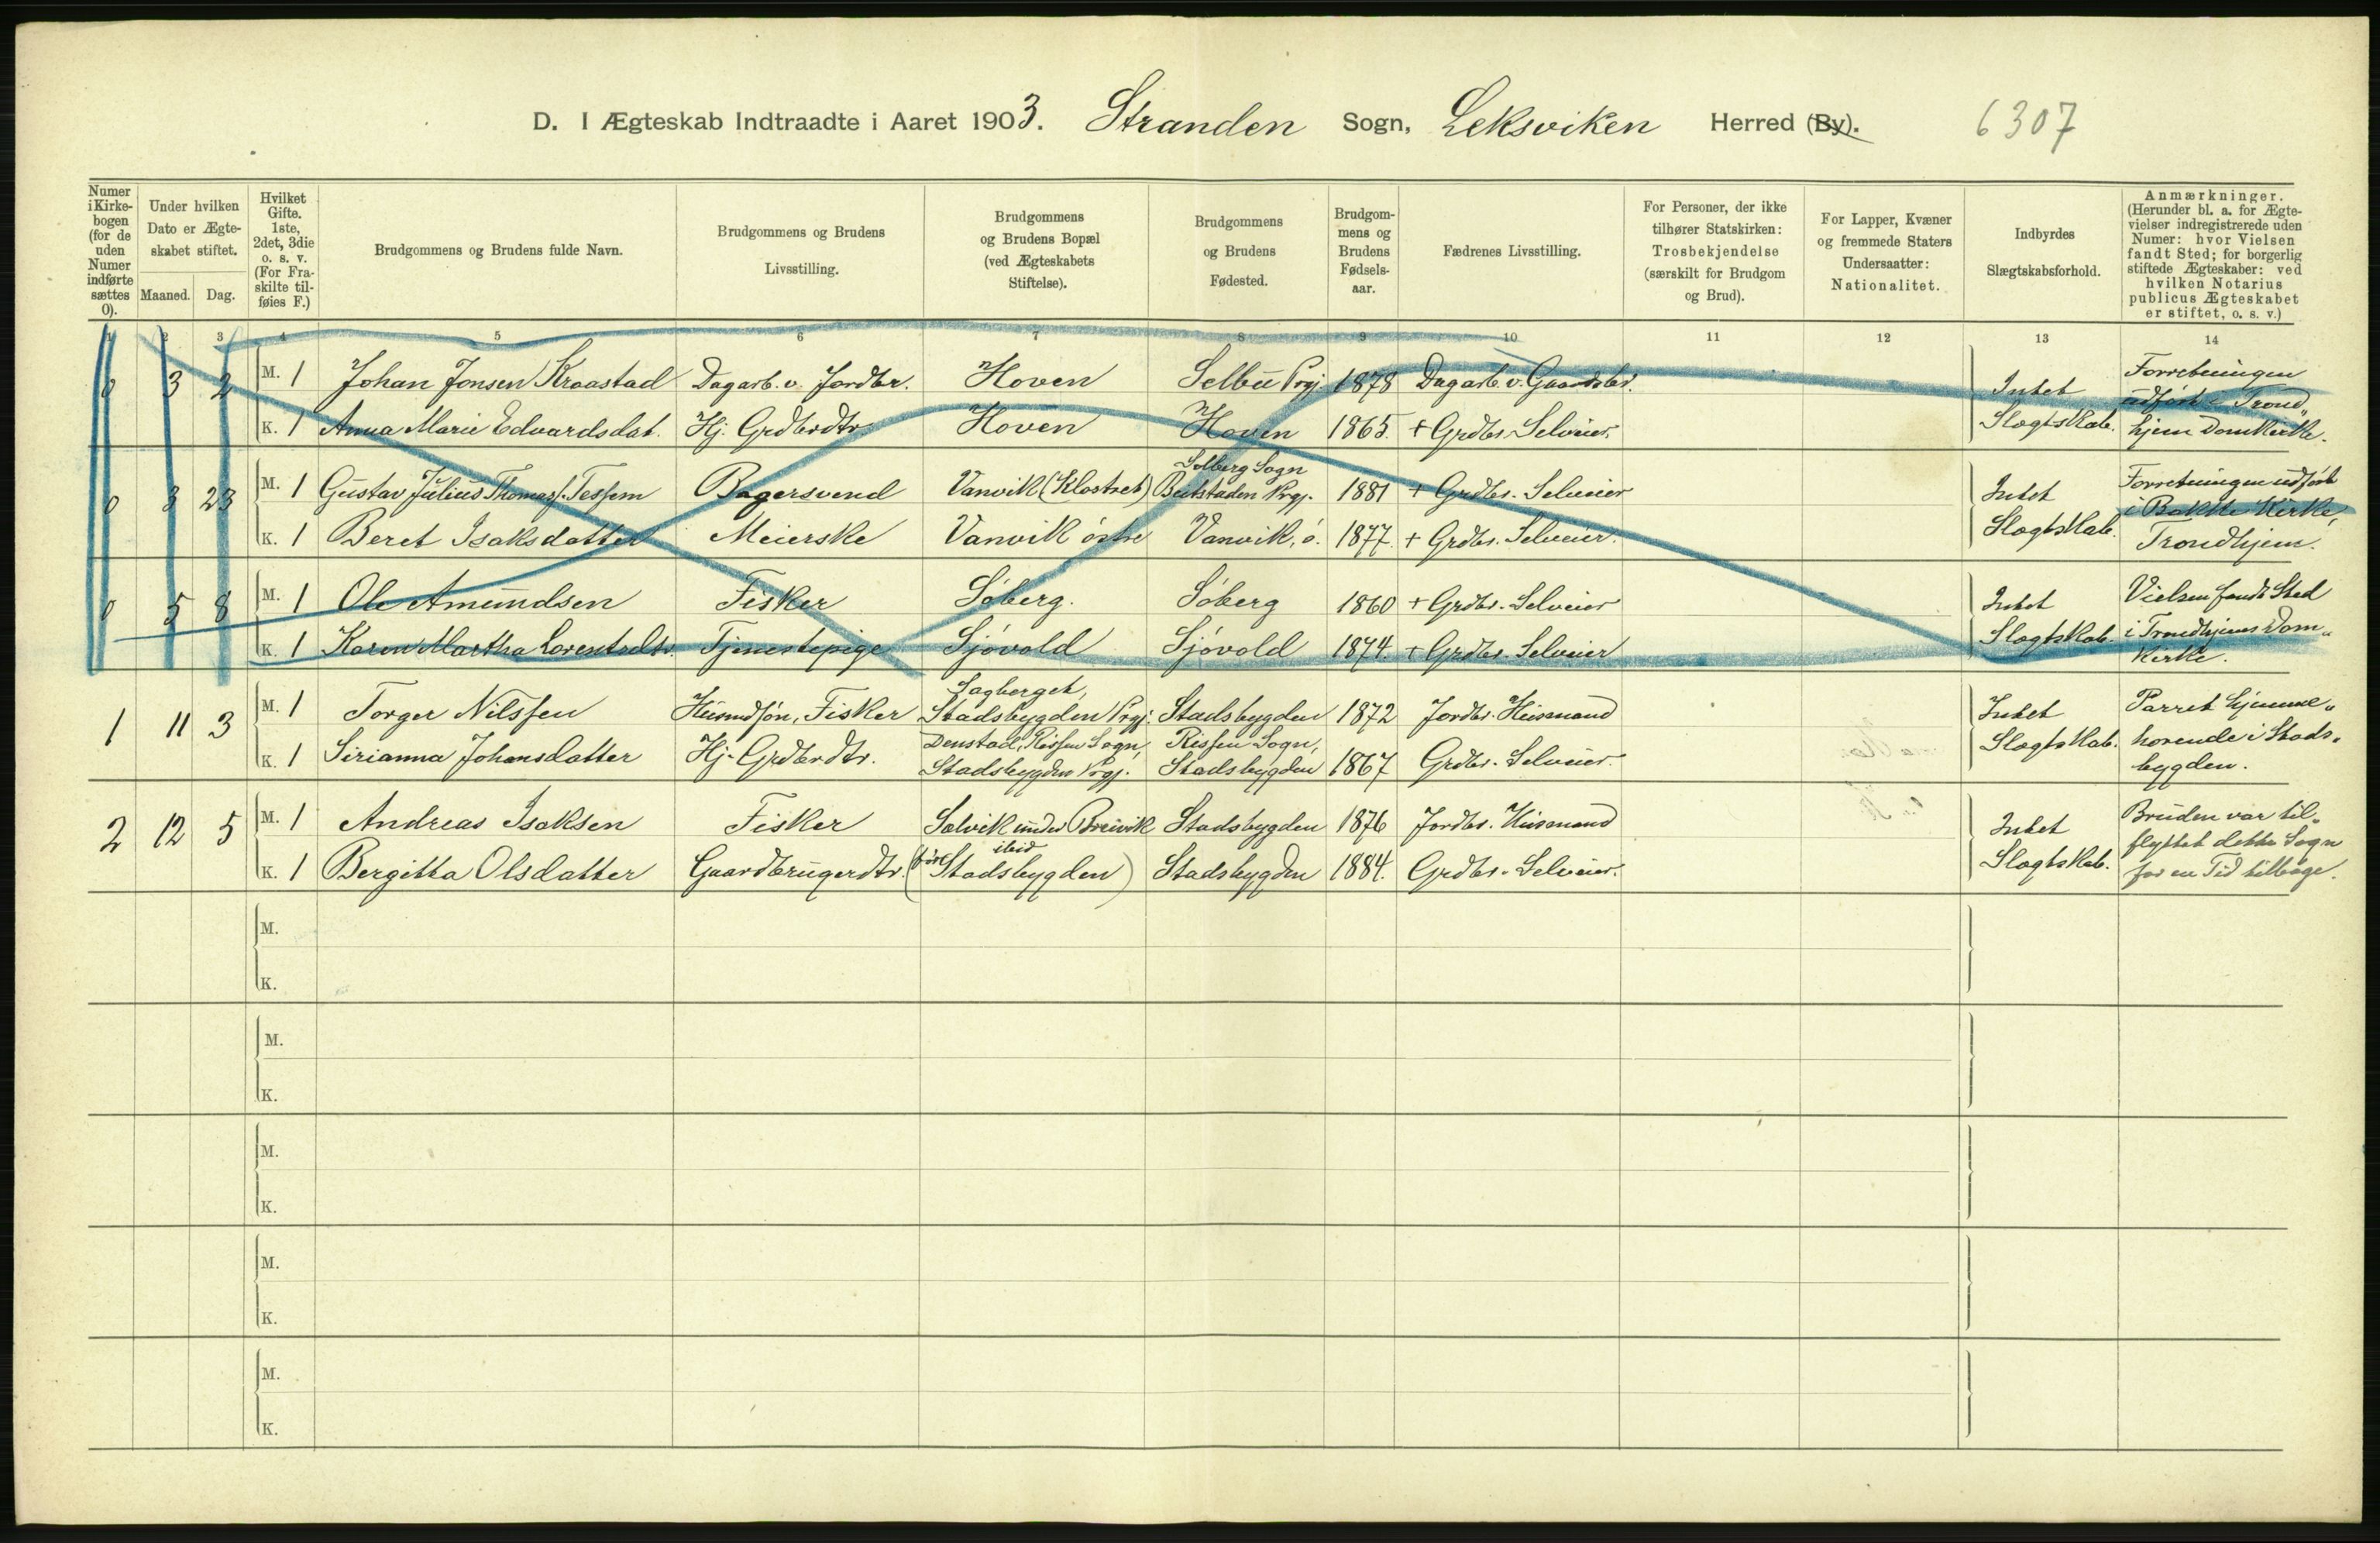 D. I Ægteskab Indtraadte i Aaret 1903. Stranden Sogn, Leksviken Herred (By). 6307
Numer i Kirkebogen (for de uden Numer indførte sættes 0).
Under hvilken Dato er Ægteskabet stiftet.
Maaned. Dag.
Hvilket Gifte. 1ste, 2det, 3die o. s. v. (For Fraskilte tilføies F.)
Brudgommens og Brudens fulde Navn.
Brudgommens og Brudens Livsstilling.
Brudgommens og Brudens Bopæl (ved Ægteskabets Stiftelse).
Brudgommens og Brudens Fødested.
Brudgommens og Brudens Fødselsaar.
Fædrenes Livsstilling.
For Personer, der ikke tilhører Statskirken: Trosbekjendelse (særskilt for Brudgom og Brud).
For Lapper, Kvæner og fremmede Staters Undersaatter: Nationalitet.
Indbyrdes Slægtskabsforhold.
Anmærkninger. (Herunder bl. a. for Ægtevielser indregistrerede uden Numer: hvor Vielsen fandt Sted; for borgerlig stiftede Ægteskaber: ved hvilken Notarius publicus Ægteskabet er stiftet, o. s. v.)
1 2 3 4 5 6 7 8 9 10 11 12 13 14
0 3 2 M. 1 Johan Jonsen Kraastad Dagarb. v. Jordbr. Hoven Selbu Prgj. 1878 Dagarb. v. Gaardsbr. Intet Slægtskab. Forretningen udført i Trondhjem Domkirke.
K. 1 Anna Marie Edvardsdat. Hj. Grdbrdtr. Hoven Hoven 1865. + Grdbr. Selveier.
0 3 23 M. 1 Gustav Julius Thomass. Tessem Bagersvend Vanvik (Klostret) Solberg Sogn Beitstaden Prgj. 1881 + Grdbr. Selveier Intet Slægtskab. Forretningen udført i Bakke Kirke, Trondhjem.
K. 1 Beret Isaksdatter Meierske Vanvik østre Vanvik, ø. 1877. + Grdbr. Selveier.
0 5 8 M. 1 Ole Amundsen Fisker Søberg. Søberg 1860 + Grdbr. Selveier Intet Slægtskab. Vielsen fandt Sted i Trondhjems Domkirke.
K. 1 Karen Martha Lorentsdtr. Tjenestepige Sjøvold Sjøvold 1874. + Grdbr. Selveier
1 11 3 M. 1 Torger Nilssen Husmdsøn, Fisker Sagberget, Stadsbygden Prgj. Stadsbygden 1872 Jordbr. Husmand Intet Slægtskab. Parret hjemmehørende i Stadsbygden.
K. 1 Sirianna Johansdatter Hj. Grdbrdtr. Denstad, Rissen Sogn, Stadsbygden Prgj. Rissen Sogn, Stadsbygden 1867 Grdbr. Selveier.
2 12 5 M. 1 Andreas Isaksen Fisker Solvik under Breivik Stadsbygden 1876 Jordbr. Husmand Intet Slægtskab. Bruden var tilflyttet dette Sogn for en Tid tilbage.
K. 1 Bergitha Olsdatter Gaardbrugerdtr. ibid (før Stadsbygden) Stadsbygden 1884. Grdbr. Selveier.
M.
K.
M.
K.
M.
K.
M.
K.
M.
K.